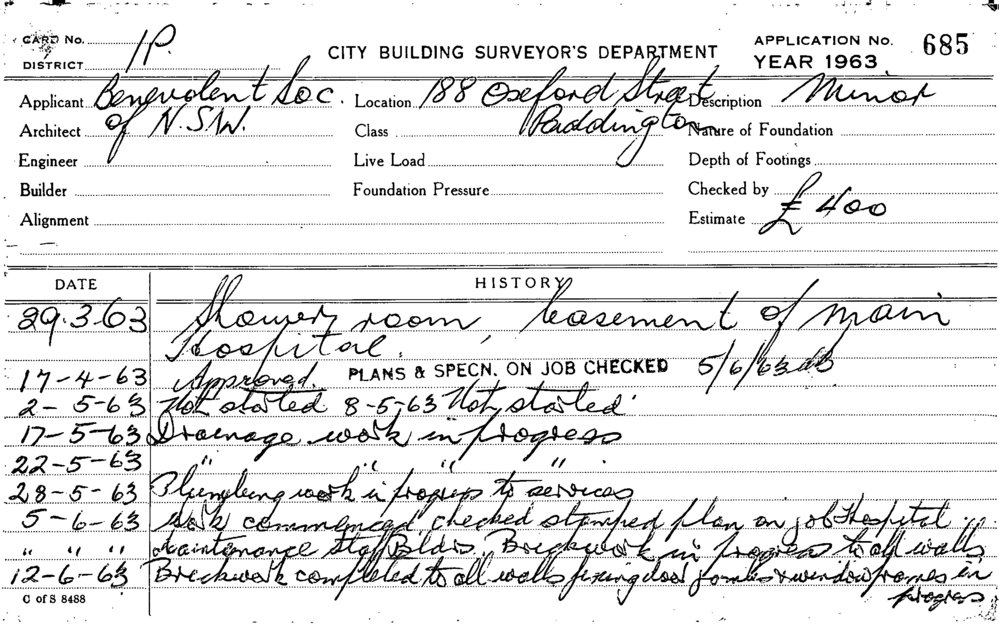 CARD No. 1P.
DISTRICT
CITY BUILDING SURVEYOR'S DEPARTMENT
APPLICATION No. 685
YEAR 1963
Applicant Benevolent Soc. Location 188 Oxford Street Description Minor
Architect of N.S.W. Class Paddington Nature of Foundation
Engineer Live Load Depth of Footings
Builder Foundation Pressure Checked by
Alignment Estimate £ 400
DATE HISTORY
29.3.63 Shower room, basement of main
Hospital.
17-4-63 Approved. PLANS & SPECN. ON JOB CHECKED 5/6/63
2-5-63 Not started 8-5-63 Not started
17-5-63 Drainage work in progress
22-5-63 " " " "
28-5-63 Plumbing work in progress to services
5-6-63 Work commenced checked stamped plan on job Hospital
" " " Maintenance Staff Bldrs. Brickwork in progress to all walls
12-6-63 Brickwork completed to all walls fixing door jambs & window frames in
progress
C of S 8488